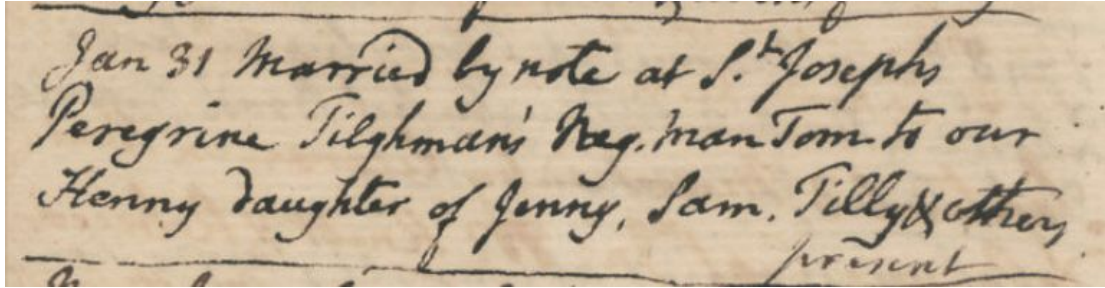 Jan 31 Married by note at S.t Josephs
Peregrine Tilghman's Neg. man Tom to our
Henny daughter of Jenny, Sam. Tilly & others
present